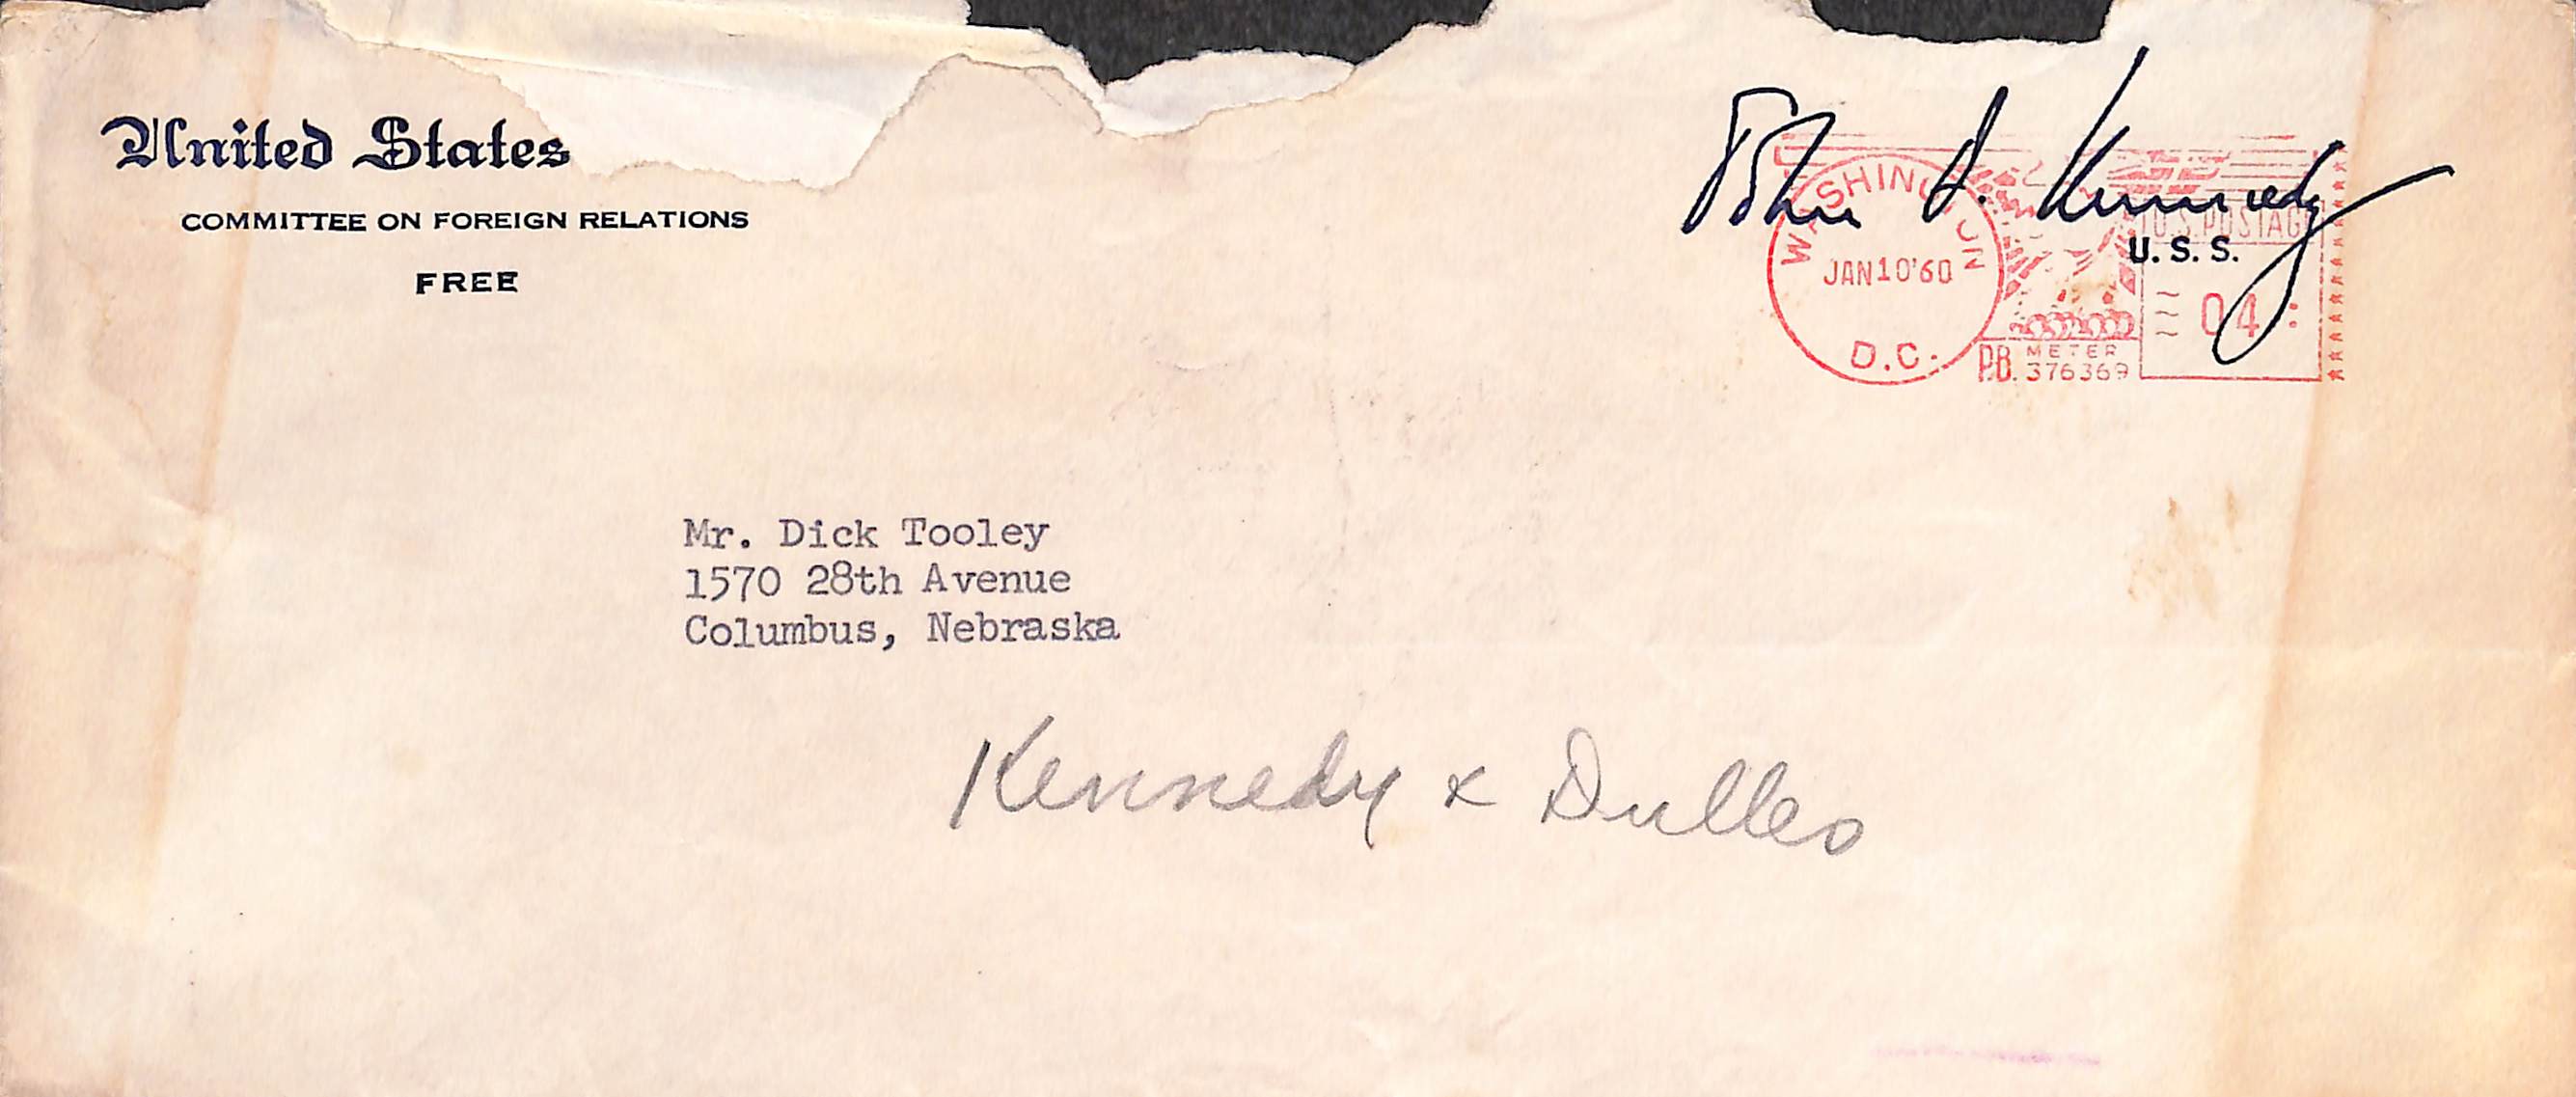 United States
COMMITTEE ON FOREIGN RELATIONS
FREE
John F. Kennedy
U.S.S.
WASHINGTON
JAN10'60
D.C.
U.S.POSTAGE
04
P.B. METER
376369
Mr. Dick Tooley
1570 28th Avenue
Columbus, Nebraska
Kennedy & Dulles